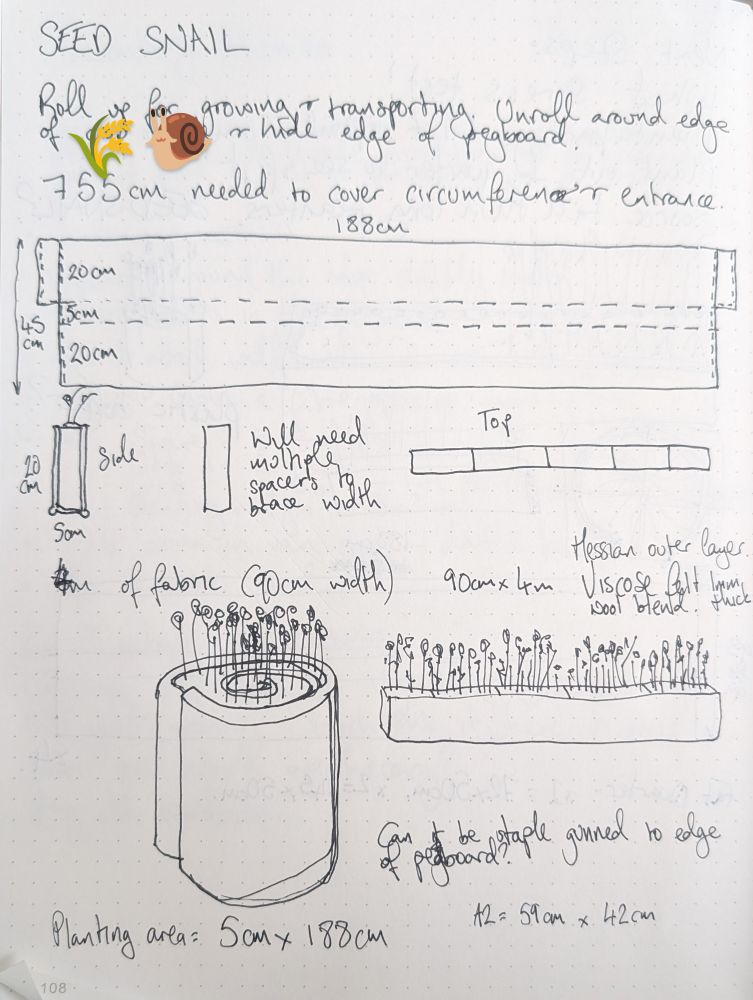 SEED SNAIL
Roll up for growing + transporting. Unroll around edge
of + hide edge of pegboard.
755cm needed to cover circumference + entrance.
188cm
20cm
5cm
45
cm
20cm
Top
Side
20
cm
5cm
Will need
multiple
spacers to
brace width
Hessian outer layer.
of fabric (90cm width)
90cm x 4m
Viscose felt 1mm
thick
wool blend.
Can it be staple gunned to edge
of pegboard?
A2 = 59cm x 42cm
Planting area = 5cm x 188cm
108